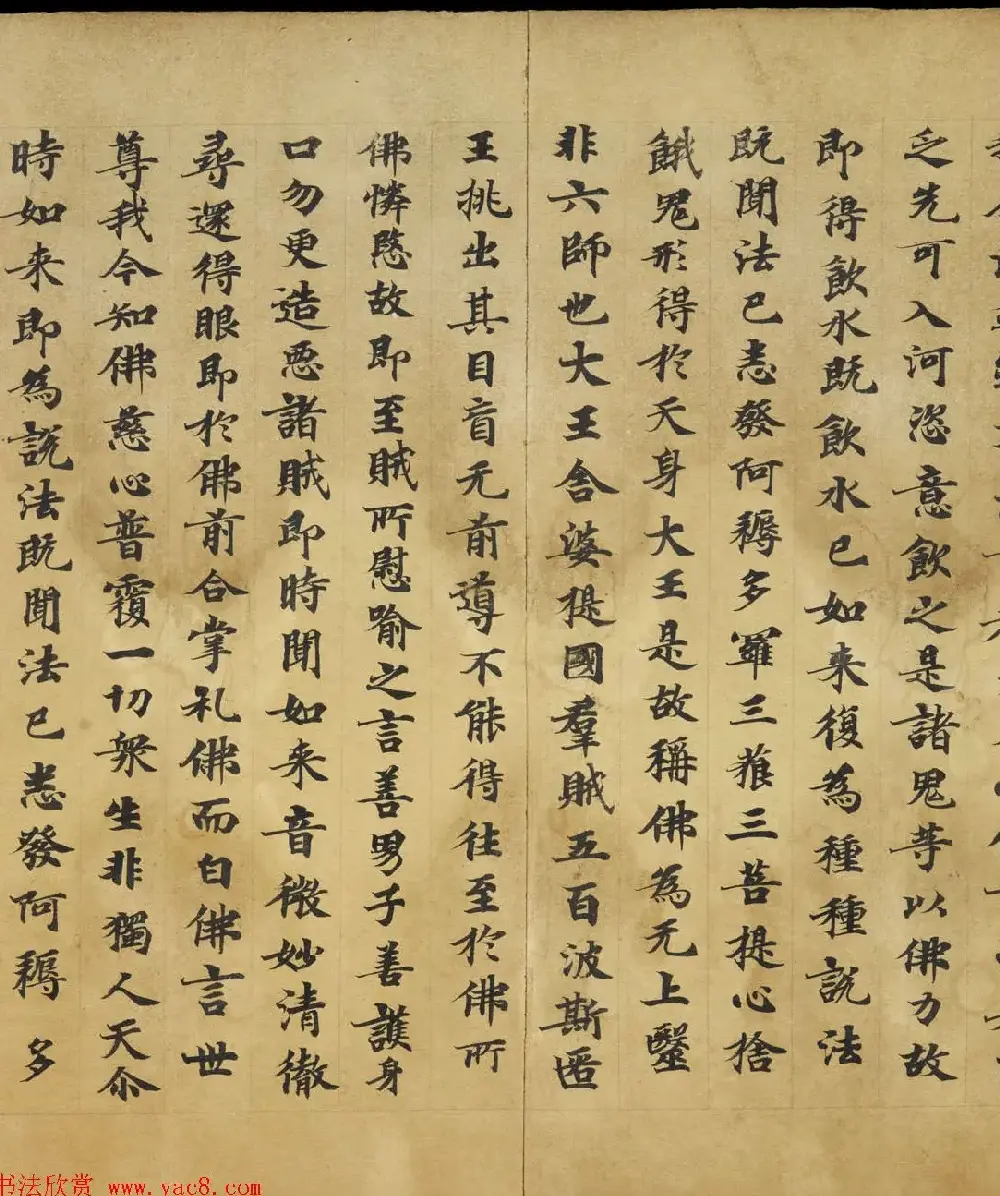 乏先可入河恣意飲之是諸鬼等以佛力故
即得飲水既飲水已如来復為種種說法
既聞法已悉發阿耨多羅三藐三菩提心捨
餓鬼形得於天身大王是故稱佛為无上醫
非六師也大王舍婆提國羣賊五百波斯匿
王挑出其目盲无前導不能得往至於佛所
佛憐愍故即至賊所慰喻之言善男子善護身
口勿更造惡諸賊即時聞如来音微妙清徹
尋還得眼即於佛前合掌礼佛而白佛言世
尊我今知佛慈心普覆一切衆生非獨人天尒
時如来即為說法既聞法已悉發阿耨多
书法欣赏 www.yac8.com